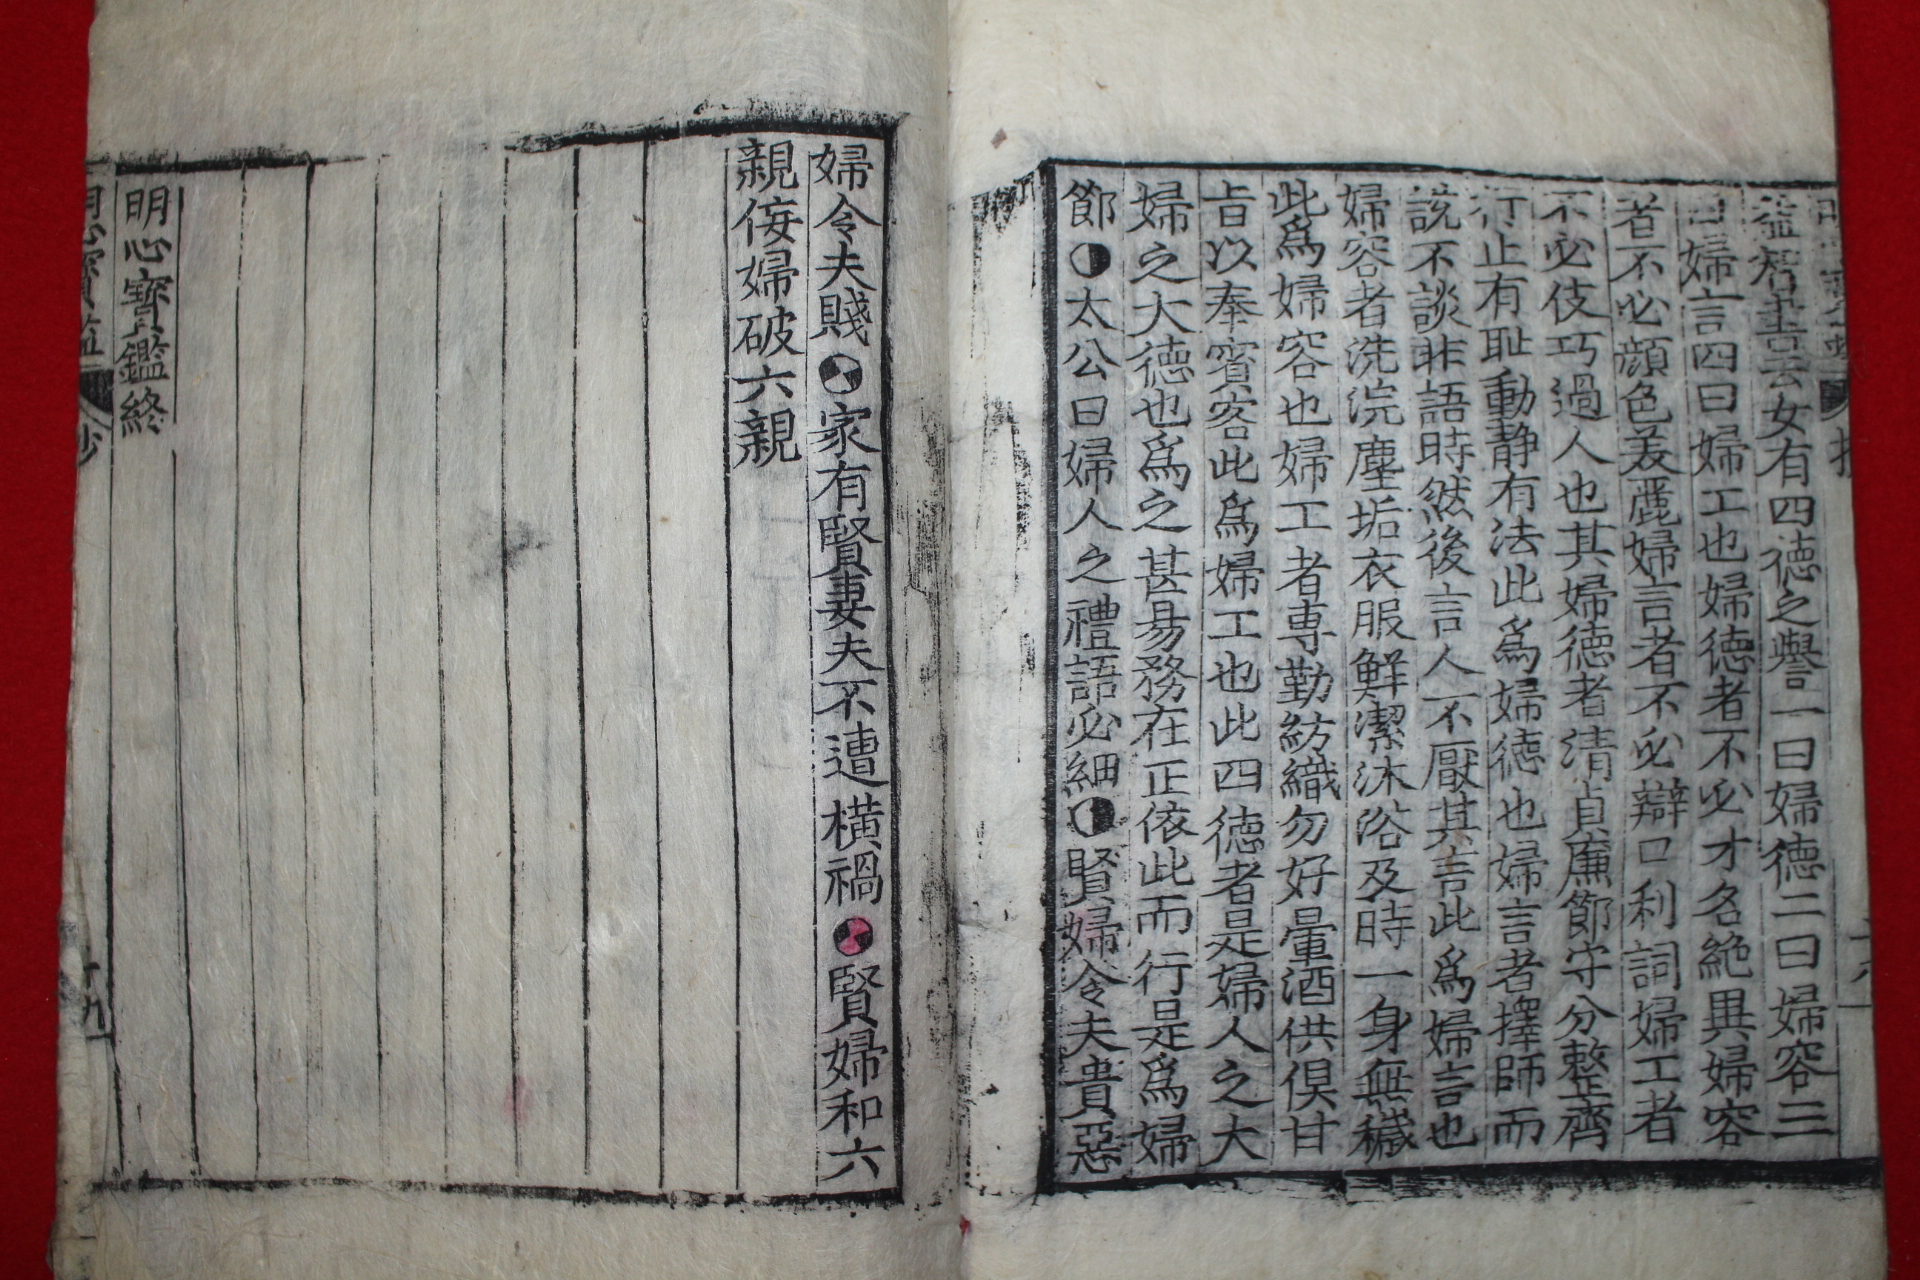 益智書云女有四德之譽一曰婦德二曰婦容三
曰婦言四曰婦工也婦德者不必才名絶異婦容
者不必顔色美麗婦言者不必辯口利詞婦工者
不必伎巧過人也其婦德者清貞廉節守分整齊
行止有耻動静有法此爲婦德也婦言者擇師而
說不談非語時然後言人不厭其言此爲婦言也
婦容者洗浣塵垢衣服鮮潔沐浴及時一身無穢
此爲婦容也婦工者專勤紡織勿好暈酒供俱甘
旨以奉賓客此爲婦工也此四德者是婦人之大
婦之大德也爲之甚易務在正依此而行是爲婦
節◑太公曰婦人之禮語必細◑賢婦令夫貴惡
婦令夫賤◑家有賢妻夫不遭橫禍◑賢婦和六
親侫婦破六親
明心寶鑑終
明心寶鑑 抄 十九